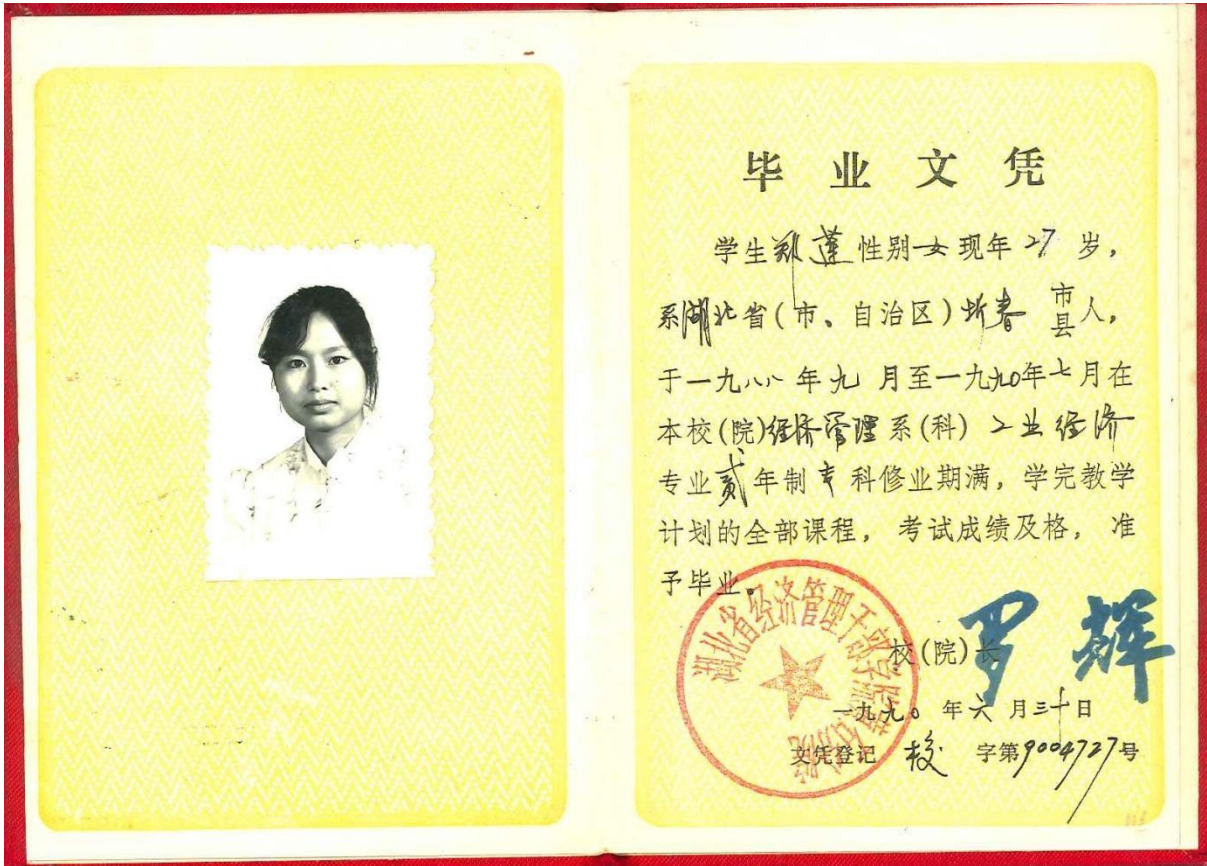 毕业文凭
学生郑莲性别女现年27岁,
系湖北省(市、自治区)圻春市县人,
于一九八八年九月至一九九0年七月在
本校(院)经济管理系(科)工业经济
专业贰年制专科修业期满,学完教学
计划的全部课程,考试成绩及格,准
予毕业。
湖北省经济管理干部学院黄石分院
校(院)长 罗辉
一九九0年六月三十日
文凭登记 校 字第9004727号